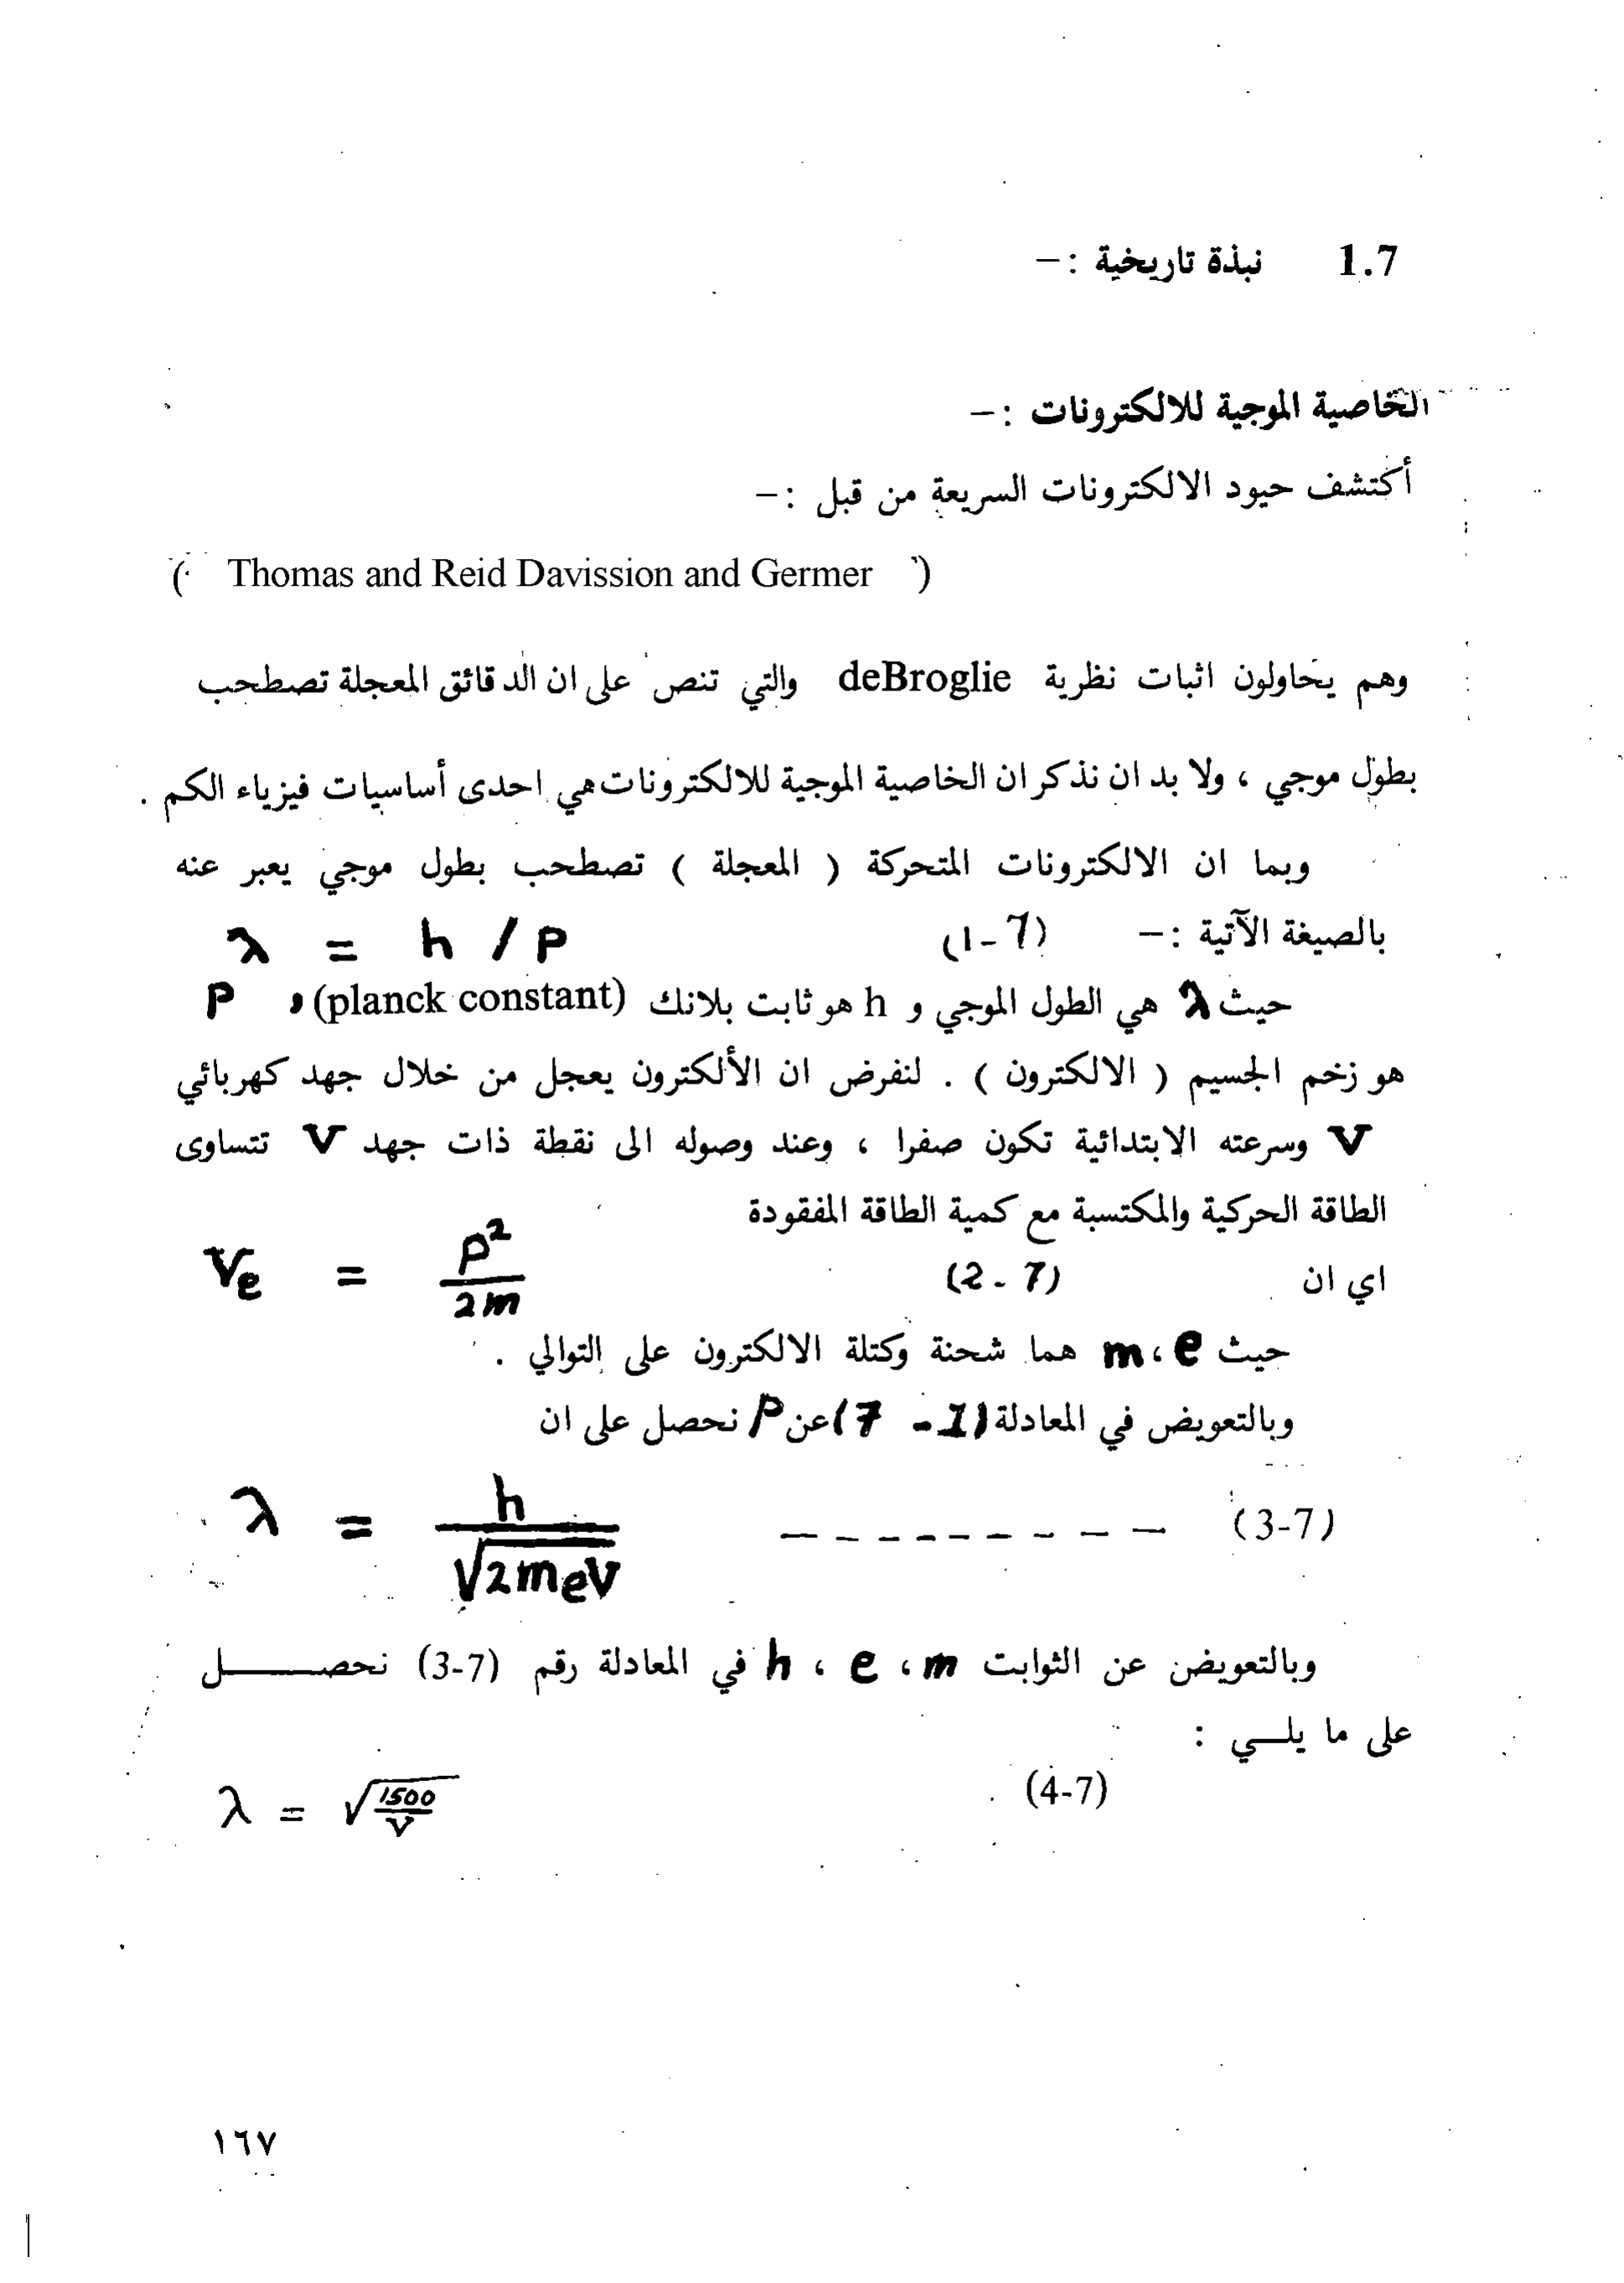 1.7 نبذة تاريخية :–
الخاصية الموجية للالكترونات :–
أكتشف حيود الالكترونات السريعة من قبل :–
( Thomas and Reid Davission and Germer )
وهم يحاولون اثبات نظرية deBroglie والتي تنص على ان الدقائق المعجلة تصطحب
بطول موجي ، ولا بد ان نذكر ان الخاصية الموجية للالكترونات هي احدى أساسيات فيزياء الكم .
وبما ان الالكترونات المتحركة ( المعجلة ) تصطحب بطول موجي يعبر عنه
بالصيغة الآتية :– (1-7) λ = h / P
حيث λ هي الطول الموجي و h هو ثابت بلانك (planck constant) و P
هو زخم الجسيم ( الالكترون ) . لنفرض ان الألكترون يعجل من خلال جهد كهربائي
V وسرعته الابتدائية تكون صفرا ، وعند وصوله الى نقطة ذات جهد V تتساوى
الطاقة الحركية والمكتسبة مع كمية الطاقة المفقودة
اي ان (2-7) Ve = P²/2m
حيث m ، e هما شحنة وكتلة الالكترون على التوالي .
وبالتعويض في المعادلة (1-7) عن P نحصل على ان
(3-7) – – – – – – – – – λ = h/√2meV
وبالتعويض عن الثوابت h ، e ، m في المعادلة رقم (3-7) نحصـــل
على ما يلـــي :
(4-7) λ = √1500/V
١٦٧